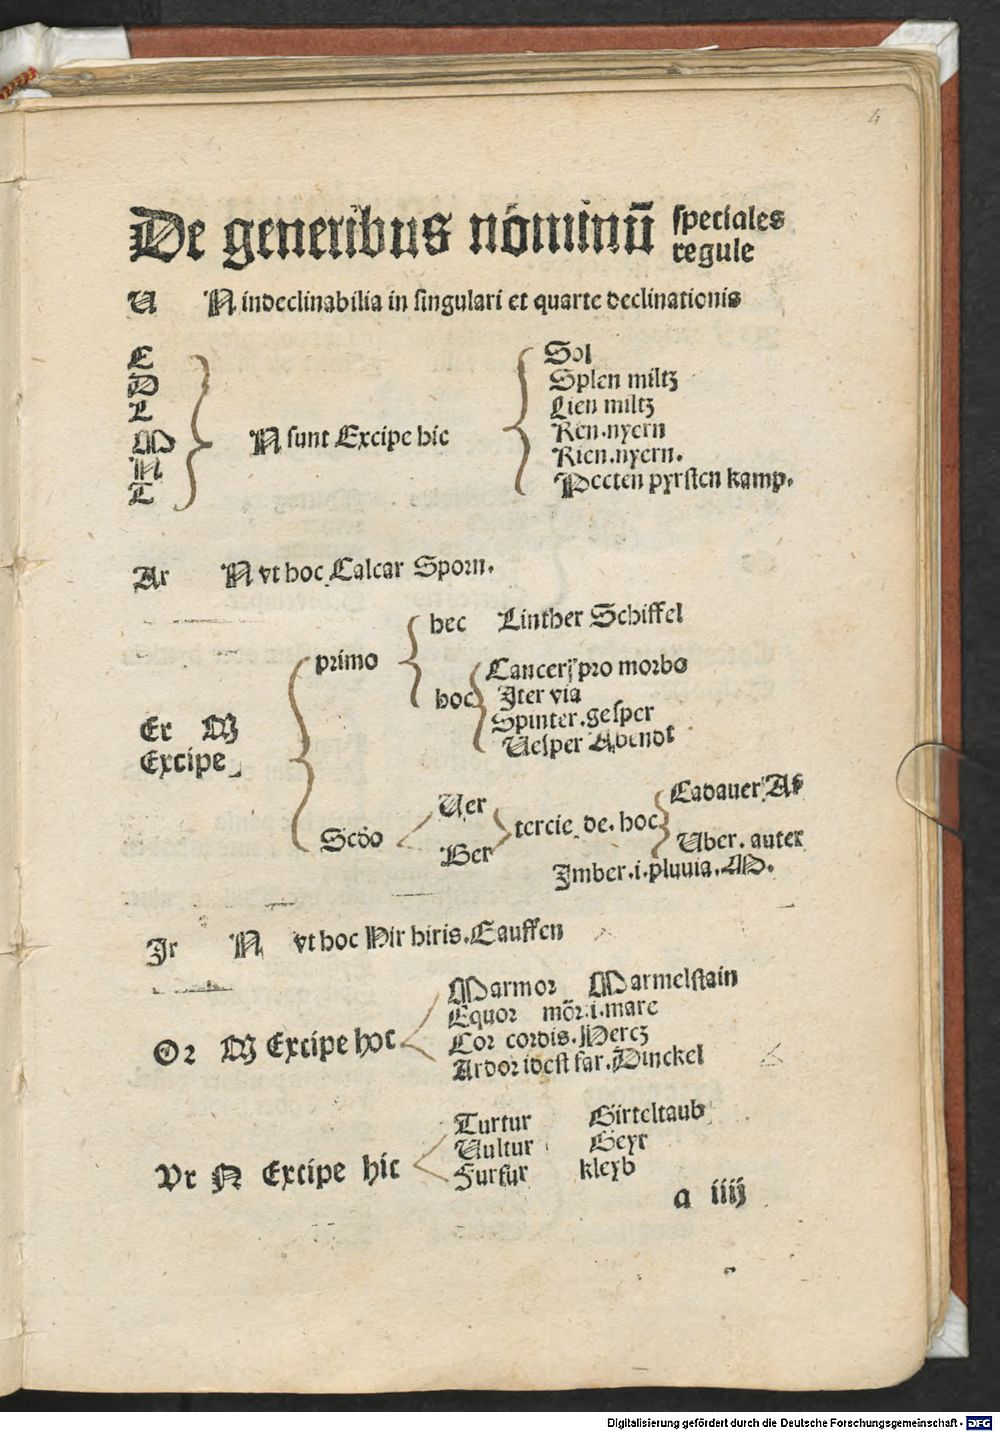 4
De generibus nōminū speciales
regule
U N indeclinabilia in singulari et quarte declinationis
C
D
L
M
N
T
N sunt Excipe hic
Sol
Splen miltz
Lien miltz
Ren.nyern
Rien.nyern.
Pecten pyrsten kamp.
Ar N vt hoc Calcar Sporn.
primo
hec Linther Schiffel
hoc
Cancer pro morbo
Iter via
Spinter.gesper
Uesper Abendt
Er M
Excipe
Scďo
Uer
Ber
tercie de.hoc
Cadauer As
Uber.auter
Imber.i.pluuia.M.
Ir N vt hoc Hir hiris.Tauffen
Or M Excipe hoc
Marmor Marmelstain
Equor mōr.i.mare
Cor cordis.Hercz
Ardor idest far.Dinckel
Vr N Excipe hic
Turtur Girteltaub
Uultur Geyr
Furfur kleyb
a iiij
Digitalisierung gefördert durch die Deutsche Forschungsgemeinschaft - DFG